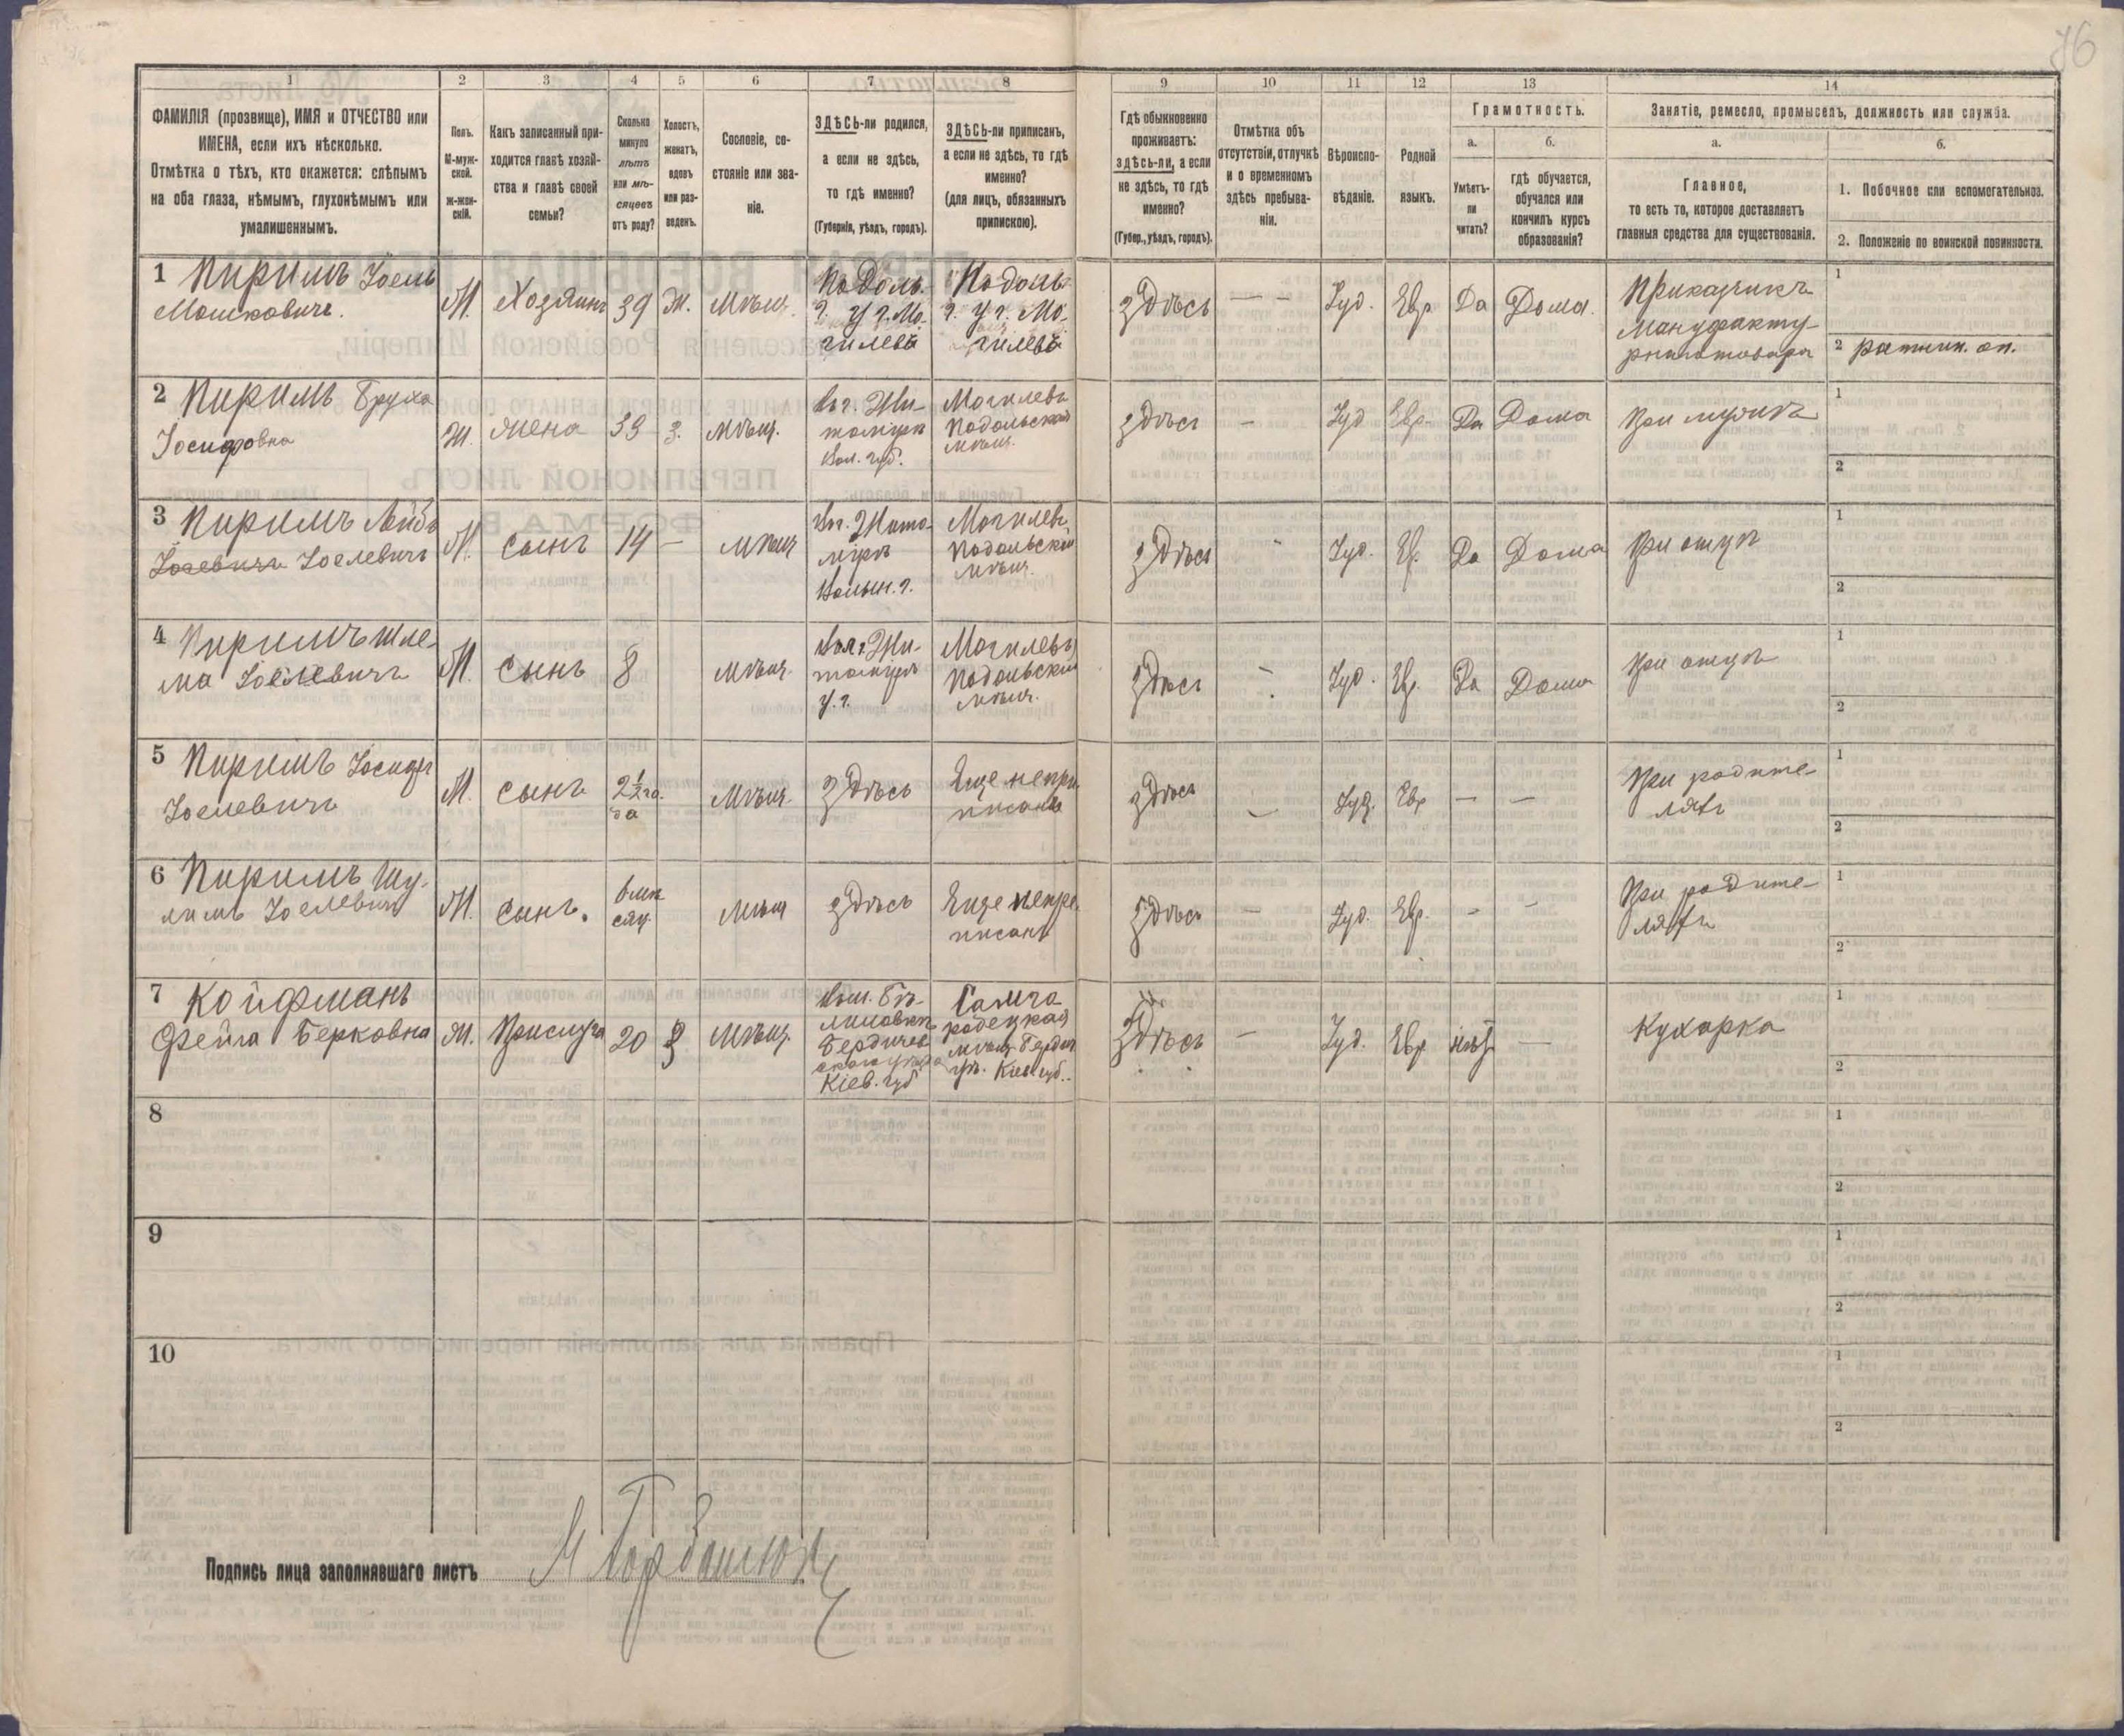 76
1 2 3 4 5 6 7 8 9 10 11 12 13 14
ФАМИЛІЯ (прозвище), ИМЯ и ОТЧЕСТВО или
ИМЕНА, если ихъ нѣсколько.
Отмѣтка о тѣхъ, кто окажется: слѣпымъ
на оба глаза, нѣмымъ, глухонѣмымъ или
умалишеннымъ.
Полъ.
М-муж-
ской.
ж-жен-
скій.
Какъ записанный при-
ходится главѣ хозяй-
ства и главѣ своей
семьи?
Сколько
минуло
лѣтъ
или мѣ-
сяцевъ
отъ роду?
Холостъ,
женатъ,
вдовъ
или раз-
веденъ.
Сословіе, со-
стояніе или зва-
ніе.
ЗДѢСЬ-ли родился,
а если не здѣсь,
то гдѣ именно?
(Губернія, уѣздъ, городъ).
ЗДѢСЬ-ли приписанъ,
а если не здѣсь, то гдѣ
именно?
(для лицъ, обязанныхъ
припискою).
Гдѣ обыкновенно
проживаетъ:
здѣсь-ли, а если
не здѣсь, то гдѣ
именно?
(Губер., уѣздъ, городъ).
Отмѣтка объ
отсутствіи, отлучкѣ
и о временномъ
здѣсь пребыва-
ніи.
Вѣроиспо-
вѣданіе.
Родной
языкъ.
Грамотность.
а.
Умѣетъ-
ли
читать?
б.
гдѣ обучается,
обучался или
кончилъ курсъ
образованія?
Занятіе, ремесло, промыселъ, должность или служба.
а.
Главное,
то есть то, которое доставляетъ
главныя средства для существованія.
б.
1. Побочное или вспомогательное.
2. Положеніе по воинской повинности.
1 Пиримъ Іоель
Мошковичъ.
М.
Хозяинъ
39
Ж.
Мѣщ.
Подоль.
г. У г. Мо-
гилевѣ
Подоль.
г. У г. Мо-
гилевѣ
здѣсь
— —
Іуд.
Евр
Да
Дома.
Прикащикъ
мануфакту-
рнаго товара
1
2 ратник. оп.
2 Пиримъ Бруха
Іосифовна
Ж.
жена
33
З.
мѣщ.
Въ г. Жи-
томірѣ
Вол. губ.
Могилевъ
Подольской
мѣщ.
здѣсь
—
Іуд
Евр.
Да
Дома
при мужѣ
1
2
3 Пиримъ Лейбъ
Іоелевичъ
М.
сынъ
14
—
мѣщ
Въ г. Жито-
мірѣ
Волын. г.
Могилевъ
Подольской
мѣщ.
здѣсь
-
Іуд.
Евр.
Да
Дома
при отцѣ
1
2
4 Пиримъ Шле-
ма Іоелевичъ
М.
сынъ
8
мѣщ.
Въ г. Жи-
томірѣ
Могилевъ
Подольской
мѣщ.
здѣсь
Іуд.
Евр.
Да
Дома
при отцѣ
1
2
5 Пиримъ Іосифъ
Іоелевичъ
М.
сынъ
2½ го-
да
мѣщ.
здѣсь
Еще непри-
писанъ
здѣсь
—
Іуд.
Евр
—
—
При родите-
ляхъ
1
2
6 Пиримъ Шу-
лимъ Іоелевичъ
М.
сынъ.
6 мѣ-
сяц.
мѣщ
здѣсь
Еще непри-
писанъ
здѣсь
—
Іуд.
Евр.
-
-
При родите-
ляхъ
1
2
7 Койфманъ
Фейга Берковна
Ж.
Прислуга
20
мѣщ.
Бердичев-
скаго уѣзда
Кіев. губ
родецкая
мѣщ. Бердич.
уѣ. Кіев. губ.
здѣсь
—
Іуд.
Евр
нѣтъ
—
Кухарка
1
2
8
1
2
9
1
2
10
1
2
Подпись лица заполнявшаго листъ